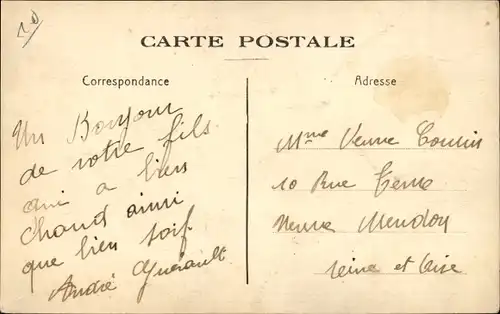 20
CARTE POSTALE
Correspondance
Adresse
Un Bonjour
de votre fils
qui a bien
chaud ainsi
que bien soif
André Guérault
Mme Veuve
10 Rue
Meudon
Seine et Oise